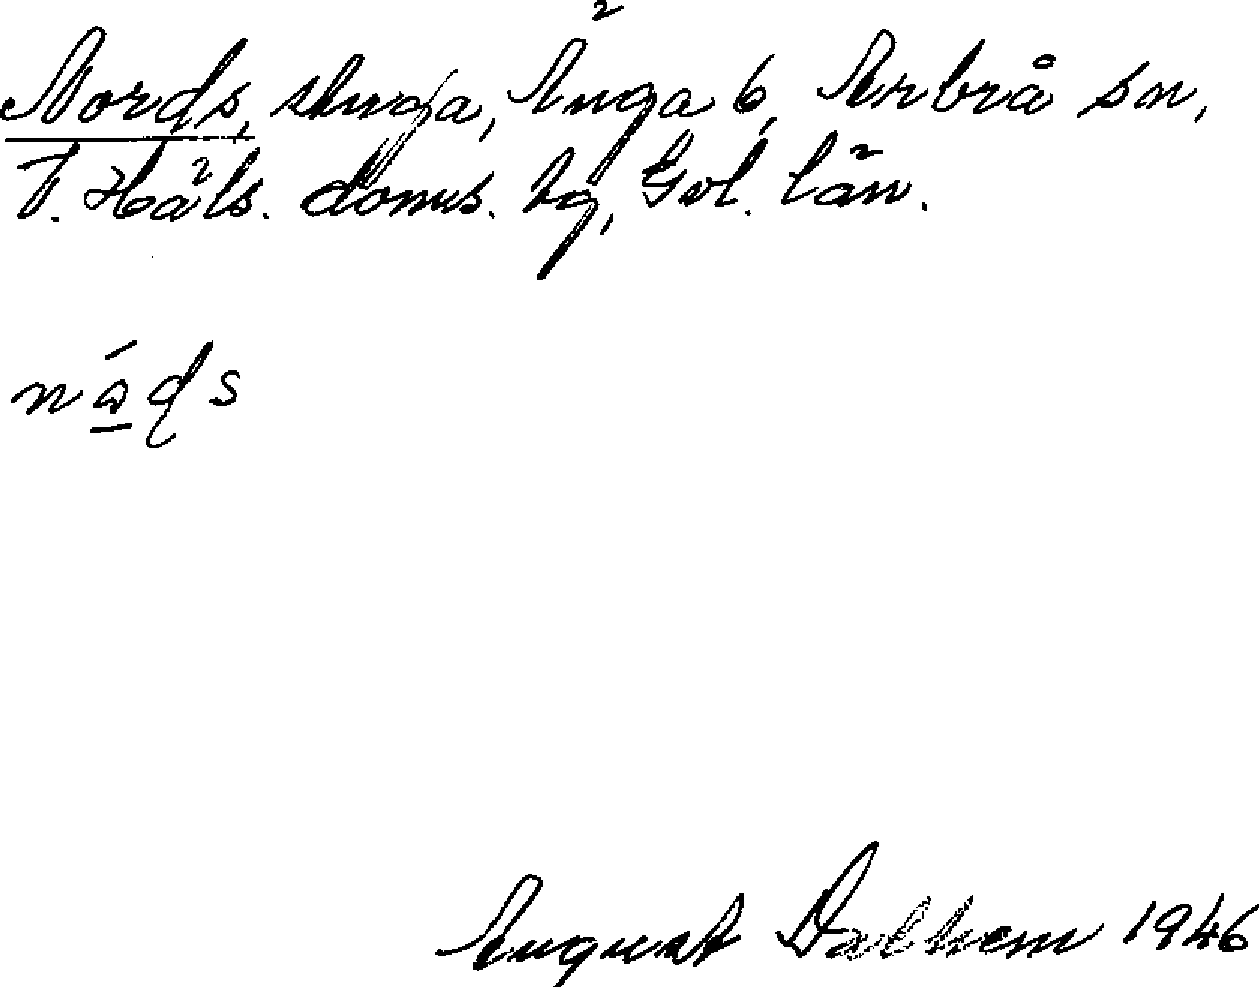 Nords, stuga, Änga 6, Arbrå sn,
V. Häls. doms. hg, Gvl. län.
nǻds
August Dalhem 1946